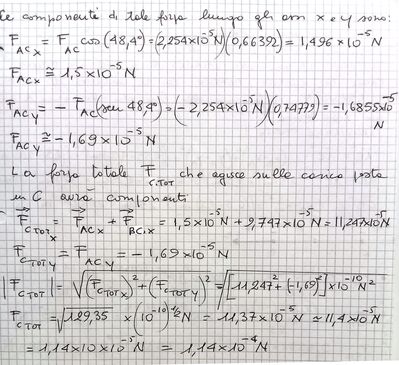 Le componenti di tale forza lungo gli assi x e y sono:
F_ACx = F_AC cos(48,4°) = (2,254×10⁻⁵N)(0,66392) = 1,496×10⁻⁵N
F_ACx ≅ 1,5×10⁻⁵N
F_ACy = - F_AC (sen 48,4°) = (-2,254×10⁻⁵N)(0,74779) = -1,6855×10⁻⁵
N
F_ACy ≅ -1,69×10⁻⁵N
La forza totale F⃗_C,TOT che agisce sulla carica posta
in C avrà componenti
F⃗_CTOTx = F⃗_ACx + F⃗_BCix = 1,5×10⁻⁵N + 9,747×10⁻⁵N = 11,247×10⁻⁵N
F⃗_CTOTy = F⃗_ACy = -1,69×10⁻⁵N
|F⃗_CTOT| = √((F⃗_CTOTx)² + (F⃗_CTOTy)²) = √([11,247² + (-1,69)²]×10⁻¹⁰N²)
F_CTOT = √129,35 ×(10⁻¹⁰)^½N = 11,37×10⁻⁵N ≃ 11,4×10⁻⁵N
= 1,14×10×10⁻⁵N = 1,14×10⁻⁴N